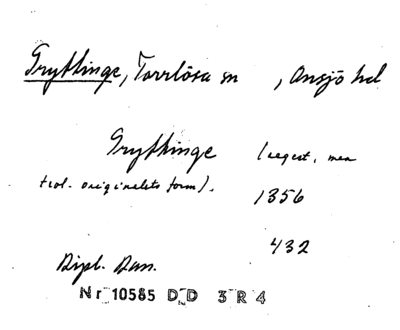 Grytthinge, Torrlösa sn , Onsjö hd
Grytthinge (regest, men
trol. originalets form).
1356
432
Dipl. Dan.
Nr 10585 DD 3 R 4